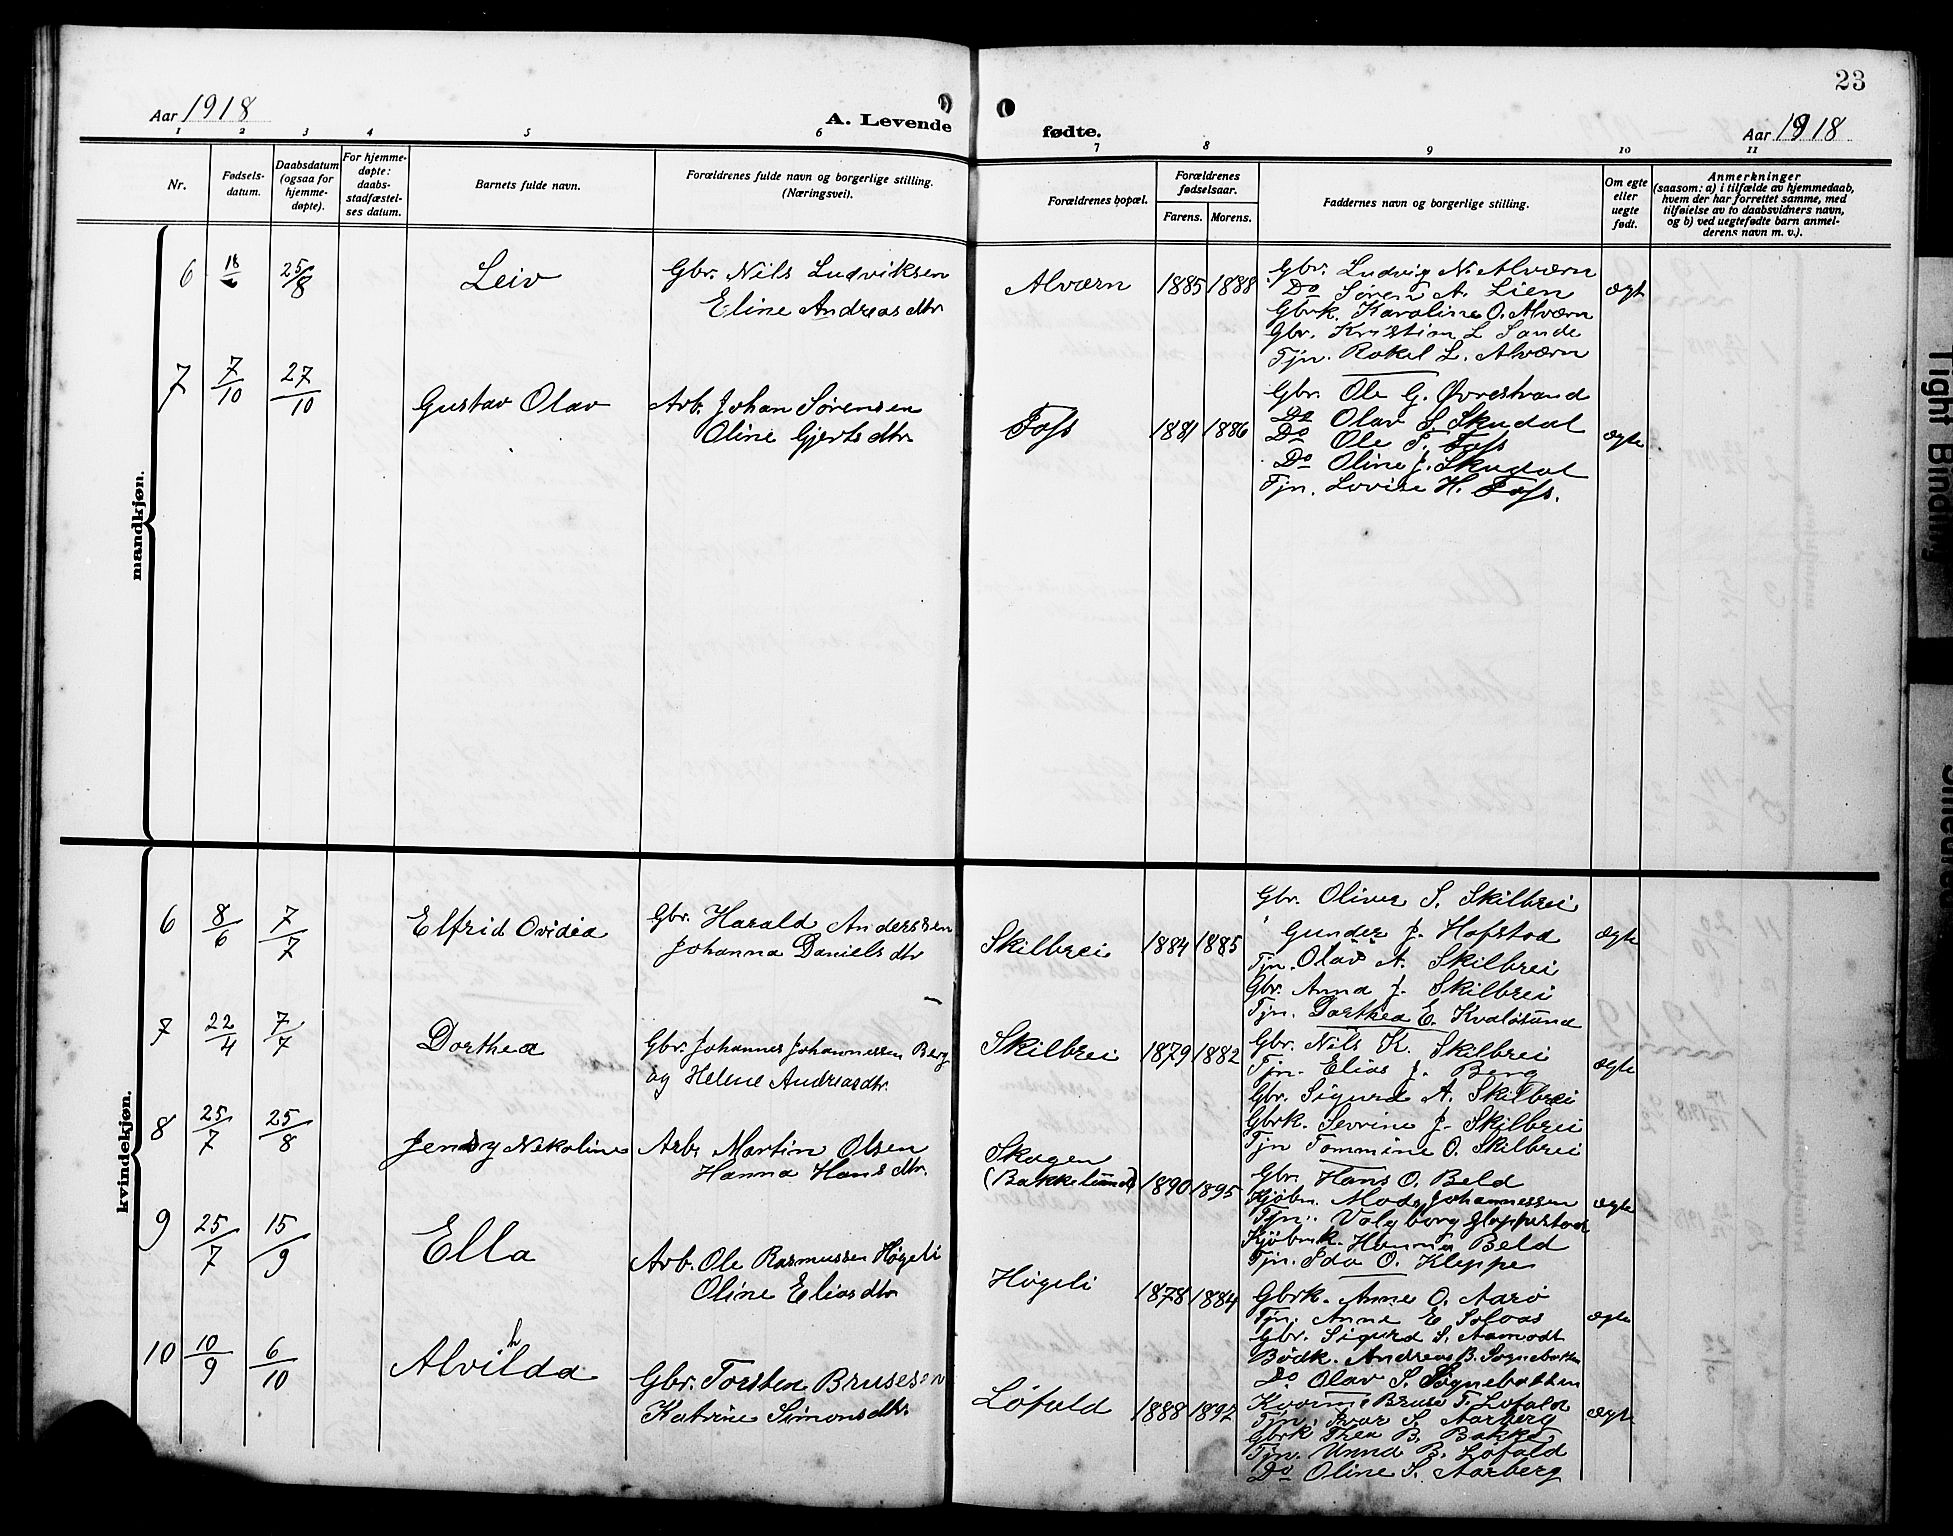 23
Aar 1918
A. Levende
fødte.
Aar 1918
1 2 3 4 5 6 7 8 9 10 11
Nr.
Fødsels-
datum.
Daabsdatum
(ogsaa for
hjemme-
døpte).
For hjemme-
døpte:
daabs-
stadfæstel-
ses datum.
Barnets fulde navn.
Forældrenes fulde navn og borgerlige stilling.
(Næringsvei).
Forældrenes bopæl.
Forældrenes
fødselsaar.
Farens. Morens.
Faddernes navn og borgerlige stilling.
Om egte
eller
uegte
født.
Anmerkninger
(saasom: a) i tilfælde av hjemmedaab,
hvem der har forrettet samme, med
tilføielse av to daabsvidners navn,
og b) ved uegtefødte barn anmel-
derens navn m. v.).
mandkjøn.
6 25/8 Leiv Gbr. Nils Ludviksen
Eline Andreasdtr
Alværn 1885 1888 ægt
Gbr. Ludvig N. Alværn
Do Søren A. Lien
Gbrk. Karoline O. Alværn
Gbr. Kristian L Sande
Tjn. Rakel L. Alværn
7 7/10 27/10 Gustav Olav Arb. Johan Sørensen
Oline Gjertsdtr
Foss 1881 1886 ægte
Gbr. Ole G. Øvrestrand
Do Olav S. Skudal
Do Ole T. Foss
Do Oline J. Skudal
Tjn. Lovise H. Foss.
kvindekjøn.
6 8/6 7/7 Elfrid Ovidia Gbr. Harald Anderssen
Johanna Danielsdtr
Skilbrei 1884 1885 ægte
Gbr. Oliver S. Skilbrei
Gunder J. Hofstad
Tjn. Olav A. Skilbrei
Gbr. Anna J. Skilbrei
Tjn. Dorthea E. Kvaløsund
7 22/4 7/7 Dorthea Gbr. Johannes Johannessen Berg
og Helene Andreasdtr.
Skilbrei 1879 1882 ægte
Gbr. Nils K. Skilbrei
Tjn. Elias J. Berg
Gbr. Sigurd A. Skilbrei
Gbrk. Sevrine J. Skilbrei
Tjn Tommine O. Skilbrei
8 25/7 25/8 Jenny Nekoline Arb. Martin Olsen
Hanna Hansdtr.
Skogen
(Bakkelund) 1890 1895 ægte
Gbr. Hans O. Beld
Kjøbm. Johannessen
Tjn. Valgborg Gloppestad
Kjøbmk. Hanna Beld
Tjn. Ida O. Kleppe
9 25/7 15/9 Ella Arb. Ole Rasmussen Høgeli
Oline Eliasdtr
Høgeli 1878 1884 ægte
Gbrk. Anne O. Aarø
Tjn. Anne E. Solaas
Gbr. Sigurd S. Aamodt
Bødk. Andreas B. Sognebotten
Do Olav S. Sognebotten
10 10/9 6/10 Alvhilda Gbr. Torsten Brusesen
Katrine Simonsdtr.
Løfald 1888 1892 ægte
Bruse T. Løfald
Tjn. Ivar S. Aarberg
Gbrk Thea B. Bakke
Tjn. Unna B. Løfald
Do Oline S. Aarberg
Tight Binding